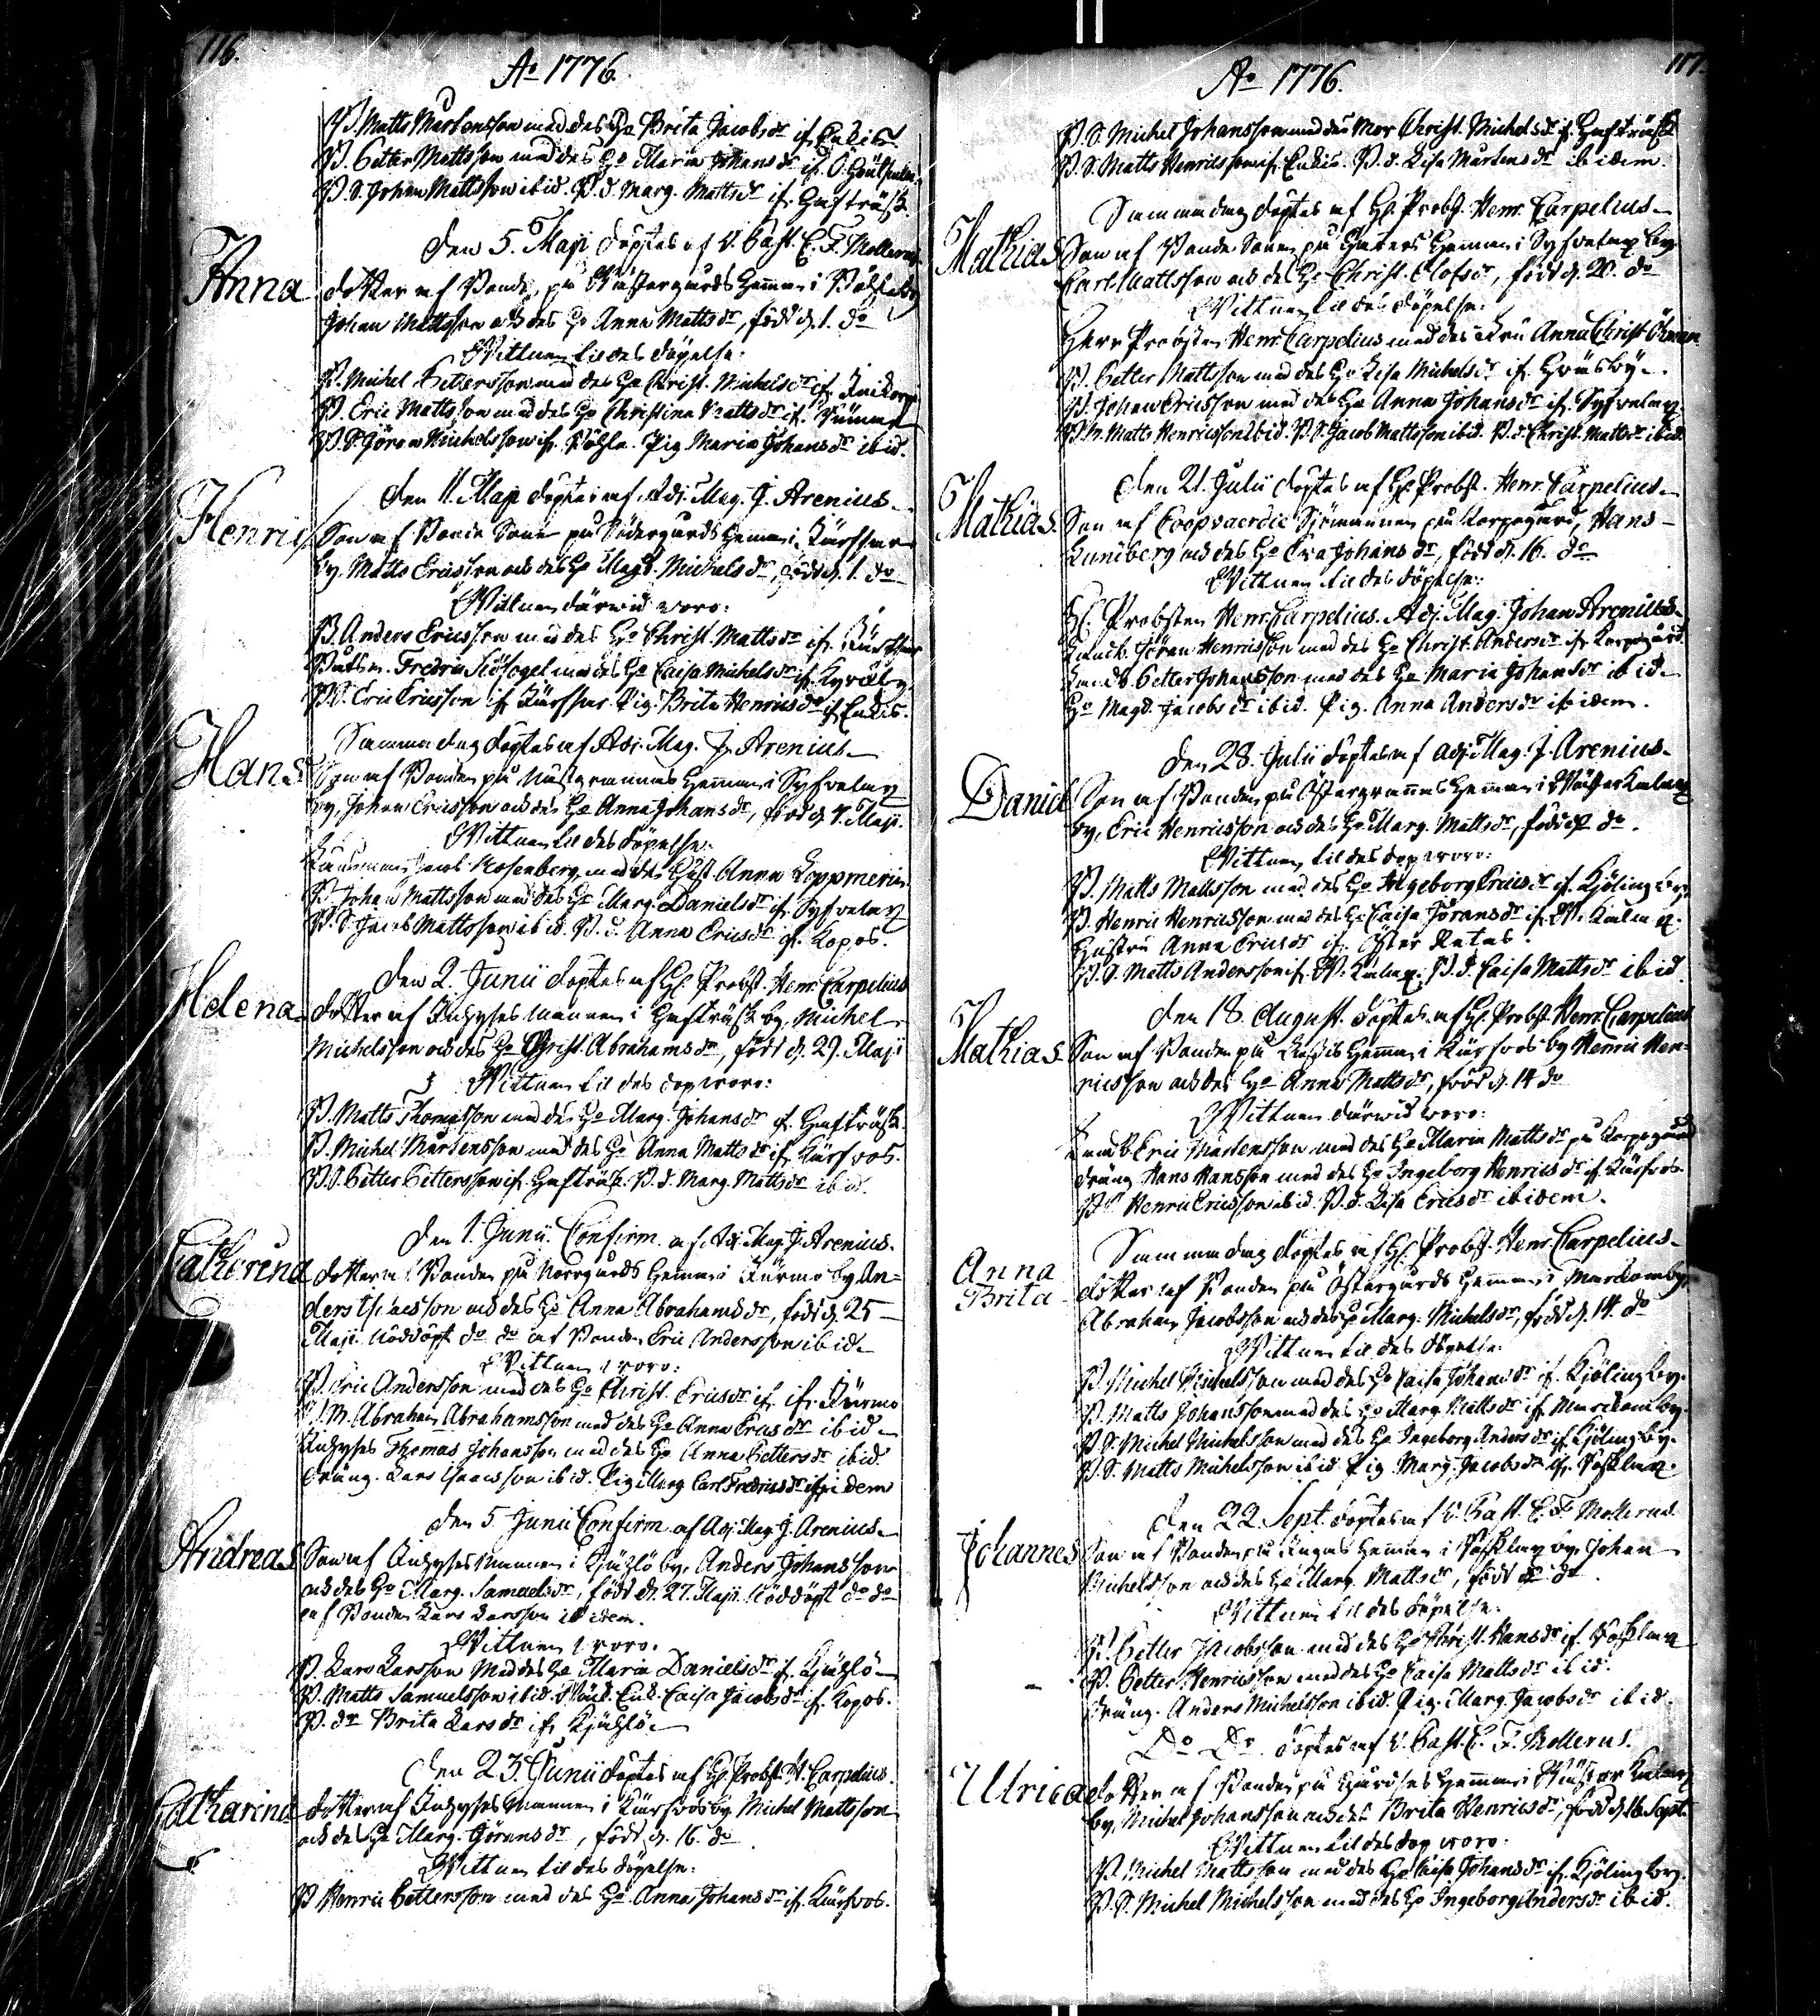 116.
Ao 1776.
B. Matts Mårtensson med des Ho Brita Jacobsdr ifr. Enkis.
B. Petter Mattsson med des Ho Maria Johansdr ifr.
B. S. Johan Mattsson ibid. B. d. Marg. Mattsdr ifr. Gesträsk.
Den 5. Maji döptes af V. Past. C. F. Mollerus
Anna
dotter af Bonden på Wästergårds Hemman i
Johan Mattsson och des Ho Anna Mattsdr, född d. 1. do
Wittnen til des döpelse:
B. Michel Pettersson med des Ho Christ. Michelsdr ifr.
B. Eric Mattsson med des Ho Christina Mattsdr if.
B. S. Göran Michelsson ifr. Pig. Maria Johansdr ibid.
Den 11. Maji döptes af Adj. Mag. J. Arenius
Henric
Son af Bonde Sonen på Södergårds Hemman i
by. Matts Ericsson och des Ho Magd. Michelsdr, född d. 1. do
Wittnen därwid woro:
B. Anders Ericsson med des Ho Christ. Mattsdr ifr.
Fredric med des Ho Caisa Michelsdr if. Kyrålg.
B. S. Eric Ericsson ifr. Pig. Brita Henricsdr if. Enkis.
Samma dag döptes af Adj. Mag. J. Arenius
Hans
Son af Bonden på Hemman i Syfvelax
by. Johan Ericsson och des Ho Anna Johansdr, född d. 4. Maji.
Wittnen til des döpelse.
Rosenberg med des Hust. Anna
B. Johan Mattsson med des Ho Marg. Danielsdr if. Syfvelax
B. S. Jacob Mattsson ibid. B. d. Anna Ericsdr if. Kopos.
Den 2. Junii döptes af H. Probst. Henr. Carpelius
Helena
dotter af Inhyses Mannen i Gesträsk by. Michel
Michelsson och des Ho Christ. Abrahamsdr, född d. 29. Maji
Wittnen til des dop woro:
B. Matts Thomasson med des Ho Marg. Johansdr if. Gesträsk.
B. Michel Mårtensson med des Ho Anna Mattsdr if. Kårsfvos.
B. S. Petter Pettersson if. Gesträsk. B. d. Marg. Mattsdr ibid.
Den 1. Junii. Confirm. af Adj. Mag. J. Arenius.
Catharina
dotter af Bonden på Norrgårds Hemman i Kärmo by An=
ders Isacsson och des Ho Anna Abrahamsdr, född d. 25
Maji. Nöddöpt do do af Bonden Eric Andersson ibid.
Wittnen woro:
B. Eric Andersson med des Ho Christ. Ericsdr if. ifr. Kärmo
B. M. Abraham Abrahamsson med des Ho Anna Ericsdr ibid.
Inhyses Thomas Johansson med des Ho Anna Pettersdr ibid.
Dräng. Lars Isaacsson ibid. Pig. Marg. Carl Fredricsdr ibidem
Den 5 Junii Confirm. af Adj. Mag. J. Arenius.
Andreas
Son af Inhyses Mannen i Kjuhlö by. Anders Johansson
och des Ho Marg. Samuelsdr, född d. 27. Maji. Nöddöpt do do
af Bonden Lars Larsson ibidem.
Wittnen woro.
B. Lars Larsson med des Ho Maria Danielsdr if. Kjuhlö
B. Matts Samuelsson ibid. Enk. Caisa Jacobsdr if. Kopos.
B. dr Brita Larsdr if. Kjuhlö
Den 23. Junii döptes af H. Probst. H. Carpelius.
Catharina
dotter af Inhyses Mannen i Kårsfvos by. Michel Mattsson
och des Ho Marg. Göransdr, född d. 16. do
Wittnen til des döpelse:
B. Henric Pettersson med des Ho Anna Johansdr if. Kårsfvos.
117.
Ao 1776.
B. S. Michel Johansson med des Mor Christ. Michelsdr if. Gesträsk
B. S. Matts Henricsson if. Enkis. B. d. Lisa Mårtensdr ibidem.
Samma dag döptes af H. Probst. Henr. Carpelius
Mathias
Son af Bonde Sonen på Hemman i Syfvelax by.
Carl Mattsson och des Ho Christ. Olofsdr, född d. 20. do
Wittnen til des döpelse:
Herr Probsten Henr. Carpelius med des Fru Anna Christ. Öhman
B. Petter Mattsson med des Ho Lisa Michelsdr if. Gräsbÿ.
B. Johan Ericsson med des Ho Anna Johansdr if. Syfvelax
B. M. Matts Henricsson ibid. B. S. Jacob Mattsson ibid. B. d. Christ. Mattsdr ibid.
Den 21. Julii döptes af H. Probst. Henr. Carpelius
Mathias
Son af Coopvaerdie Sjömannen på Korpogård, Hans
Lundberg och des Ho Eva Johansdr, född d. 16. do
Wittnen til des döpelse:
H. Probsten Henr. Carpelius. Adj. Mag. Johan Arenius.
Landb. Jöran Henricsson med des Ho Christ. Andersdr if. Korpogård.
Landb. Petter Johansson med des Ho Maria Johansdr ibid.
Ho Magd. Jacobsdr ibid. Pig. Anna Andersdr ibidem.
Den 28. Julii döptes af Adj. Mag. J. Arenius.
Daniel
Son af Bonden på Östergrannas Hemman i Wäster Kalax
by. Eric Henricsson och des Ho Marg. Mattsdr, född do.
Wittnen til des dop woro:
B. Matts Mattsson med des Ho Ingeborg Ericsdr if. Kjöling by.
B. Henric Henricsson med des Ho Caisa Jöransdr if. W. Kalax.
Hustru Anna Ericsdr if. Öster Retas.
B. S. Matts Andersson if. W. Kalax. B. d. Caisa Mattsdr ibid.
Den 18. August. döptes af H. Probst. Henr. Carpelius
Mathias
Son af Bonden på Hemman i Kårsfvos by Henric Hen=
ricsson och des Ho Anna Mattsdr, född d. 14 do
Wittnen därwid woro:
Landb. Eric Mårtensson med des Ho Maria Mattsdr på Korpogård
dräng Hans Hansson med des Ho Ingeborg Henricsdr if. Kårsfvos.
B. S. Henric Ericsson ibid. B. d. Lisa Ericsdr ibidem.
Samma dag döptes af H. Probst. Henr. Carpelius
Anna
Brita
dotter af Bonden på Östergårds Hemman i Markomby.
Abraham Jacobsson och des Ho Marg. Michelsdr, född d. 14. do
Wittnen til des döpelse:
B. Michel Michelsson med des Ho Caisa Johansdr if. Kjöling by.
B. Matts Johansson med des Ho Marg. Mattsdr if. Markomby.
B. S. Michel Michelsson med des Ho Ingeborg Andersdr if. Kjöling by.
B. S. Matts Michelsson ibid. Pig Marg. Jacobsdr if.
Den 22. Sept. döptes af V. Past. C. F. Mollerus.
Johannes
Son af Bonden på Hemman i by. Johan
Michelsson och des Ho Marg. Mattsdr, född do
Wittnen til des döpelse.
B. Petter Jacobsson med des Ho Christ. Hansdr if.
B. Petter Henricsson med des Ho Caisa Mattsdr ibid.
dräng. Anders Michelsson ibid. Pig. Marg. Jacobsdr ibid.
Do Do. döptes af V. Past. C. F. Mollerus.
Ulrica
dotter af Bonden på Hemman i Wäster Kalax
by. Michel Johansson och des Brita Henricsdr, född d. 16. Sept.
Wittnen til des dop woro.
B. Michel Mattsson med des Ho Caisa Johansdr if. Kjöling by.
B. S. Michel Michelsson med des Ho Ingeborg Andersdr ibid.